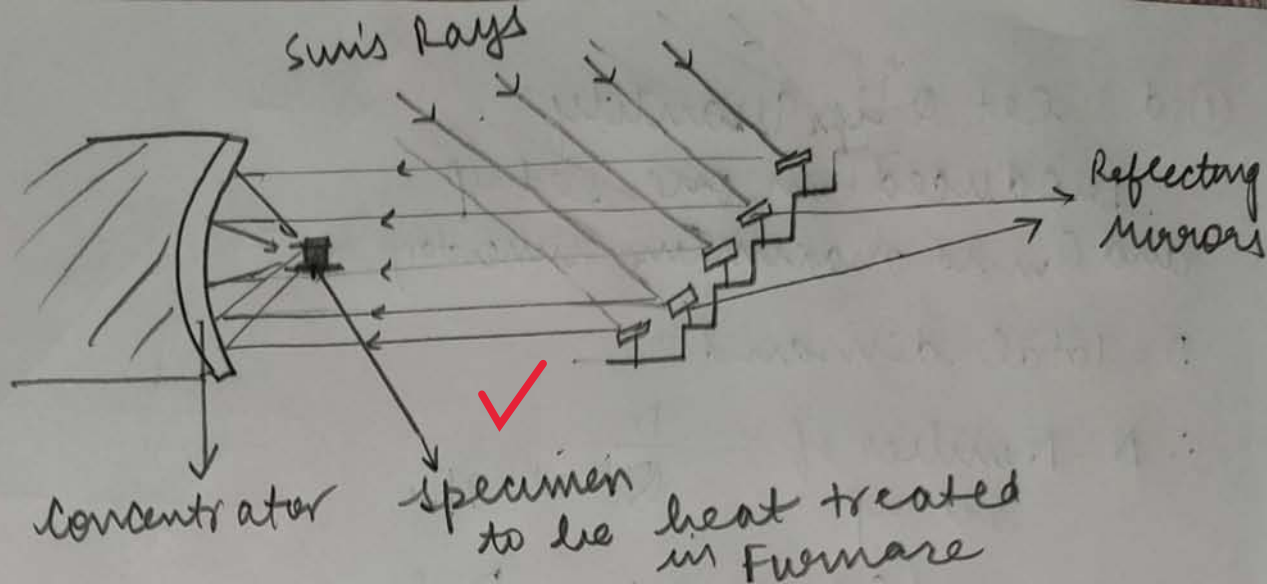 Sun's Rays
Reflecting
Mirrors
Concentrator
specimen
to be heat treated
in Furnace